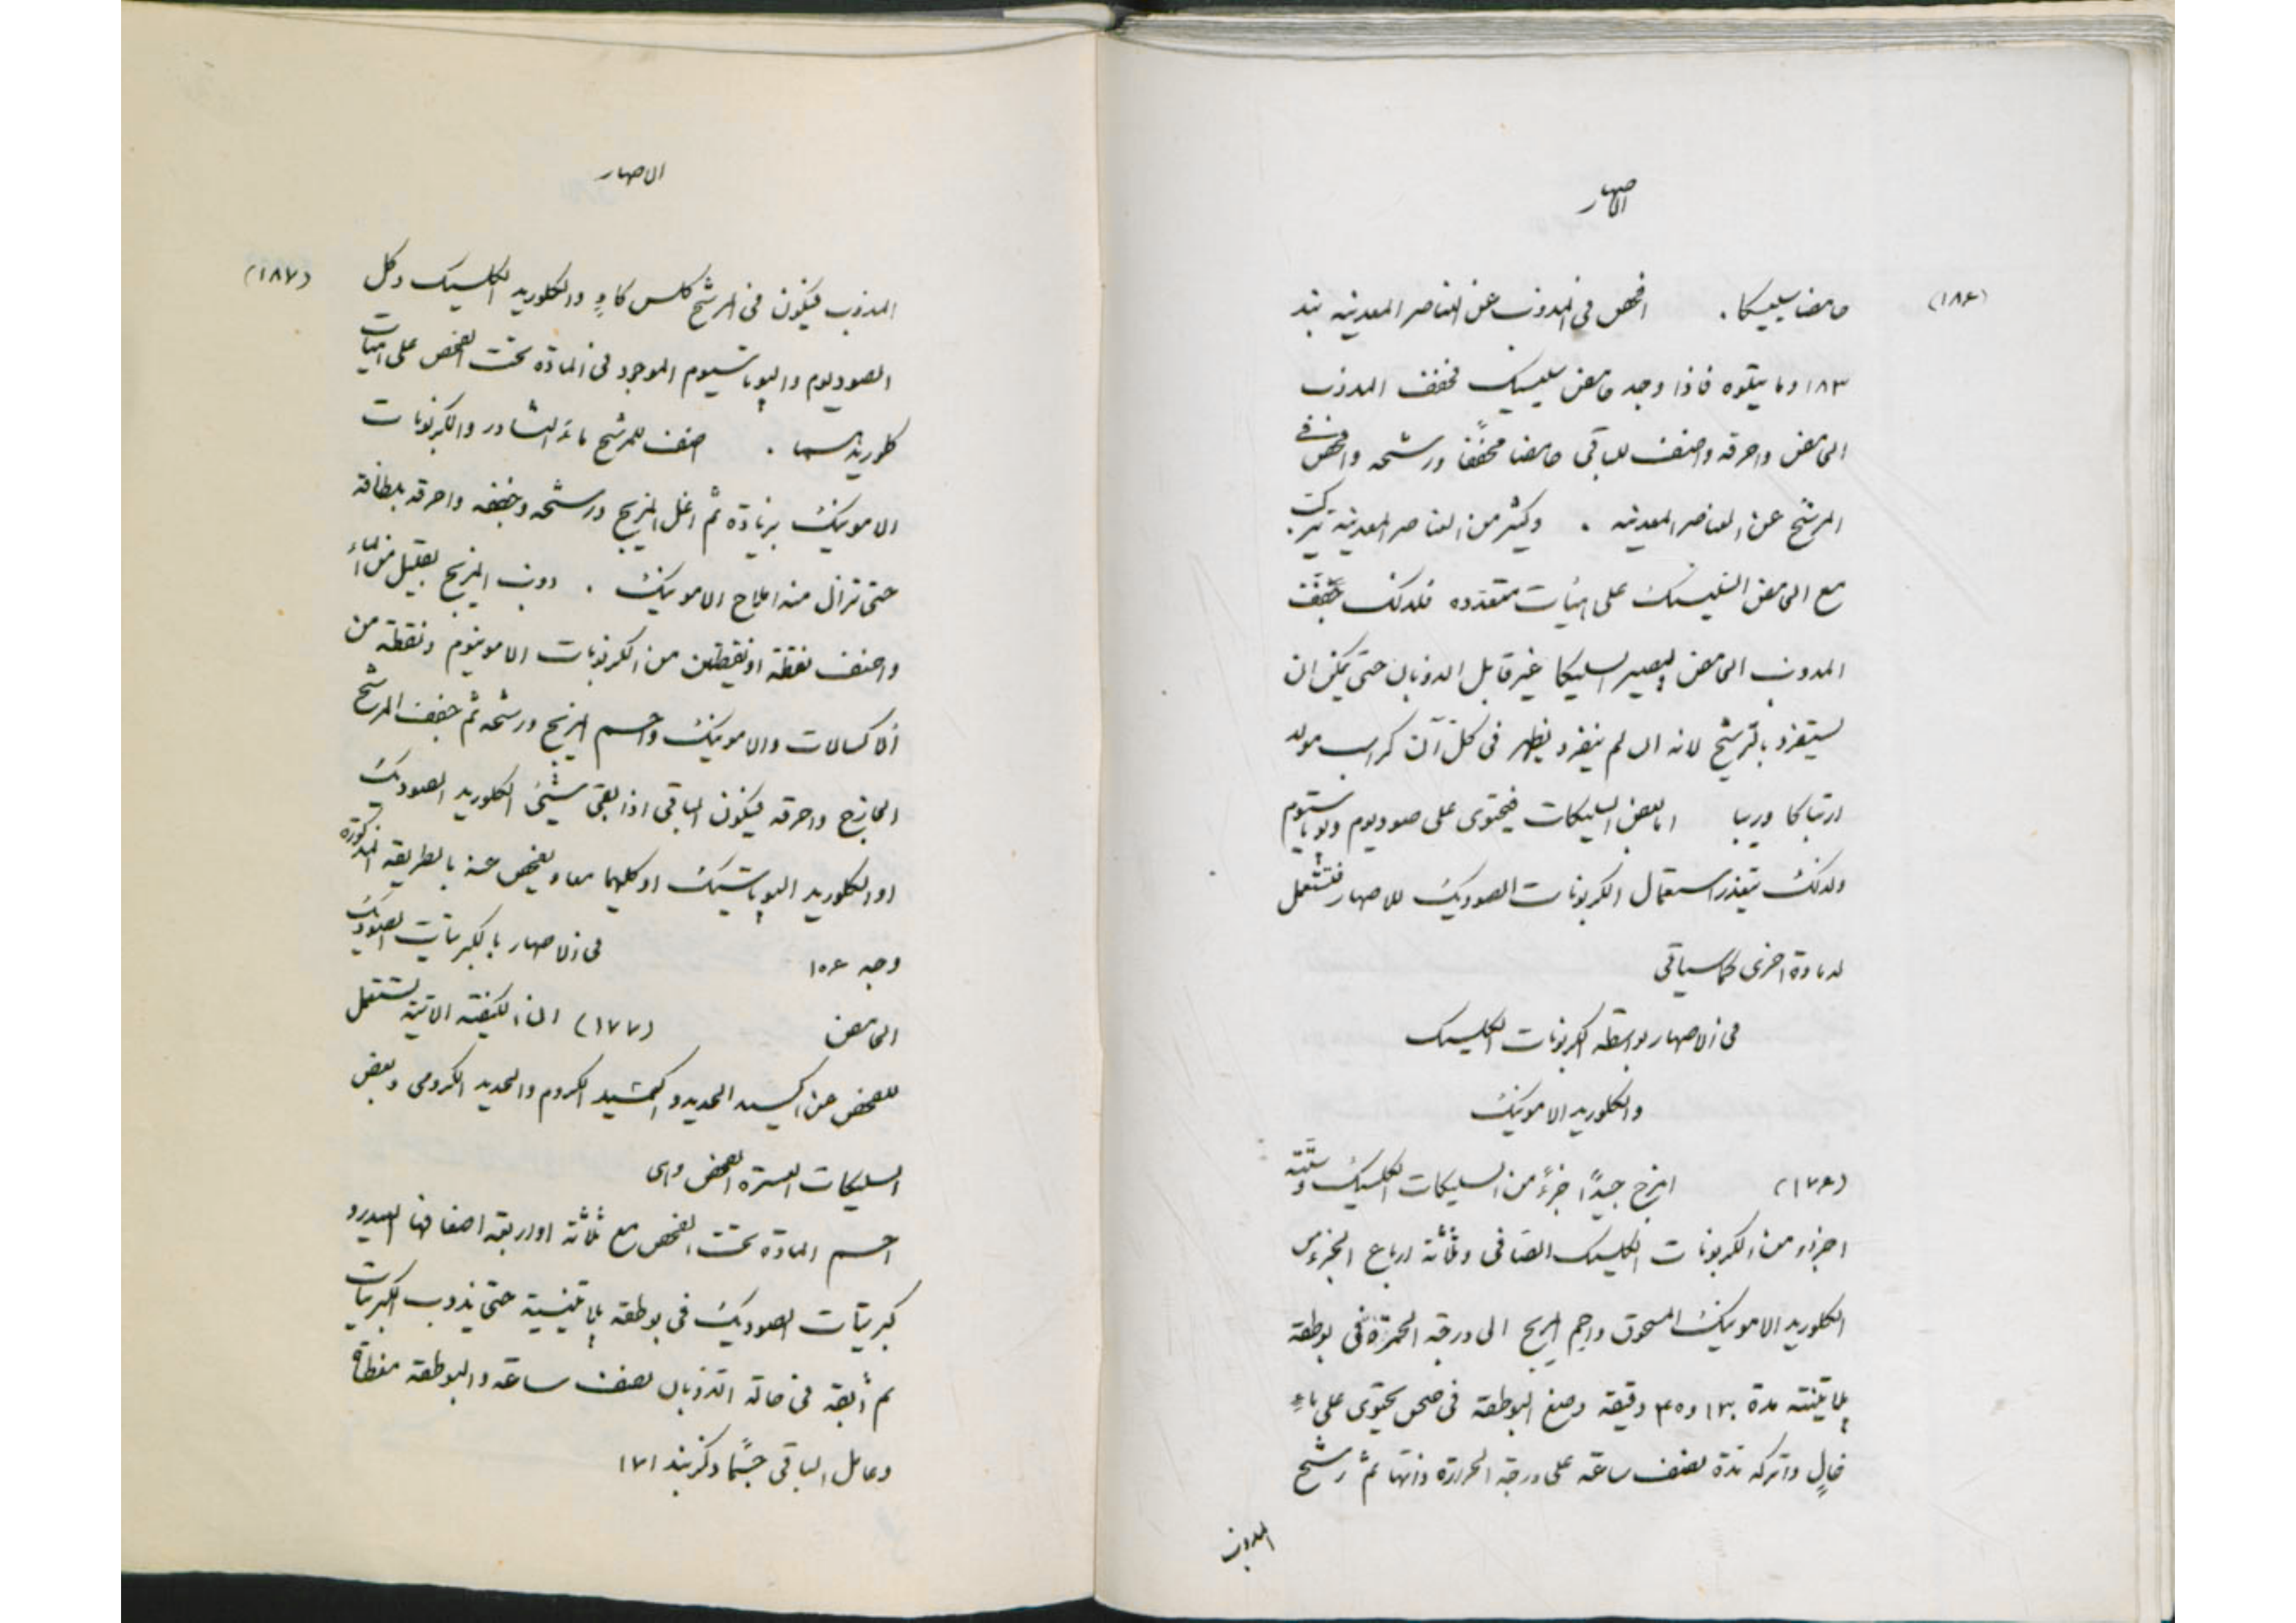 الاصهار
(١٨٦)
حامضا سليكا . افحص فى المذوب عن العناصر المعدنيه بند
١٨٣ وما يتلوه فاذا وجد حامض سليسيك فخفف المذوب
الحامض واحرقه واضف للباقى حامضا مخففًا ورشحه وافحص فى
المرشح عن العناصر المعدنيه . وكثير من العناصر المعدنية تتركب
مع الحامض السليسيك على هيئات متعدده فلذلك يجفف
المذوب الحامض ليصير السليكا غير قابل الذوبان حتى يمكن ان
يستفرد بالترشيح لانه ان لم ينفرد يظهر فى كل آن كراسب مولد
ارتباكا وريبا اما بعض السليكات فيحتوى على صوديوم وپوتاسيوم
ولذلك يتعذر استعمال الكربونات الصوديك للاصهار فتستعمل
له مادة اخرى كما سياتى
فى الاصهار بواسطه الكربونات الكلسيك
والكلوريد الامونيك
(١٧٦) امزج جيدًا جزءً من السليكات الكلسيك وستّة
اجزاء من الكربونات الكلسيك الصافى وثلاثة ارباع الجزء من
الكلوريد الامونيك المسحوق واحم المزيج الى درجه الحمرة فى بوطقه
پلاتينيه مدة ٣٠ او ٤٥ دقيقه وضع البوطقه فى صحن يحتوى على ماءٍ
غالٍ واتركه مدة نصف ساعه على درجه الحرارة ذاتها ثم رشح
المذوب
الاصهار
(١٨٧)
المذوب فيكون فى المرشح كلس كاوٍ والكلوريد الكلسيك وكل
الصوديوم والپوتاسيوم الموجود فى المادّه تحت الفحص على هيئات
كلوريديهما . اضف للمرشح ماء النشادر والكربونات
الامونيك بزيادة ثم اغل المزيج ورشحه وجففه واحرقه بلطافة
حتى تزال منه املاح الامونيك . ذوب المزيج بقليل من الماء
واضف نقطة او نقطتين من الكربونات الامونيوم ونقطه من
الاكسالات والامونيك واحم المزيج ورشحه ثم جفف المرشح
الجارح واحرقه فيكون الباقى اذا بقى شئ الكلوريد الصوديك
او الكلوريد الپوتاسيك او كليهما معا ويفحص عنه بالطريقه المذكورة
وجه ١٥٦ فى الاصهار بالكبريتات الصوديك
الحامض (١٧٧) ان الكيفيّة الاتية تستعمل
للفحص عن اكسيد الحديد واكسيد الكروم والحديد الكرومى وبعض
السليكات العسرة الفحص وهى
احم المادة تحت الفحص مع ثلاثة او اربعة اضعافها الهيدرو
كبريتات الصوديك فى بوطقه پلاتينية حتى يذوب الكبريتات
ثم أبقه فى حالة الذوبان نصف ساعه والبوطقه مغطاة
وعامل الباقى حسبما ذكر بند ١٧١